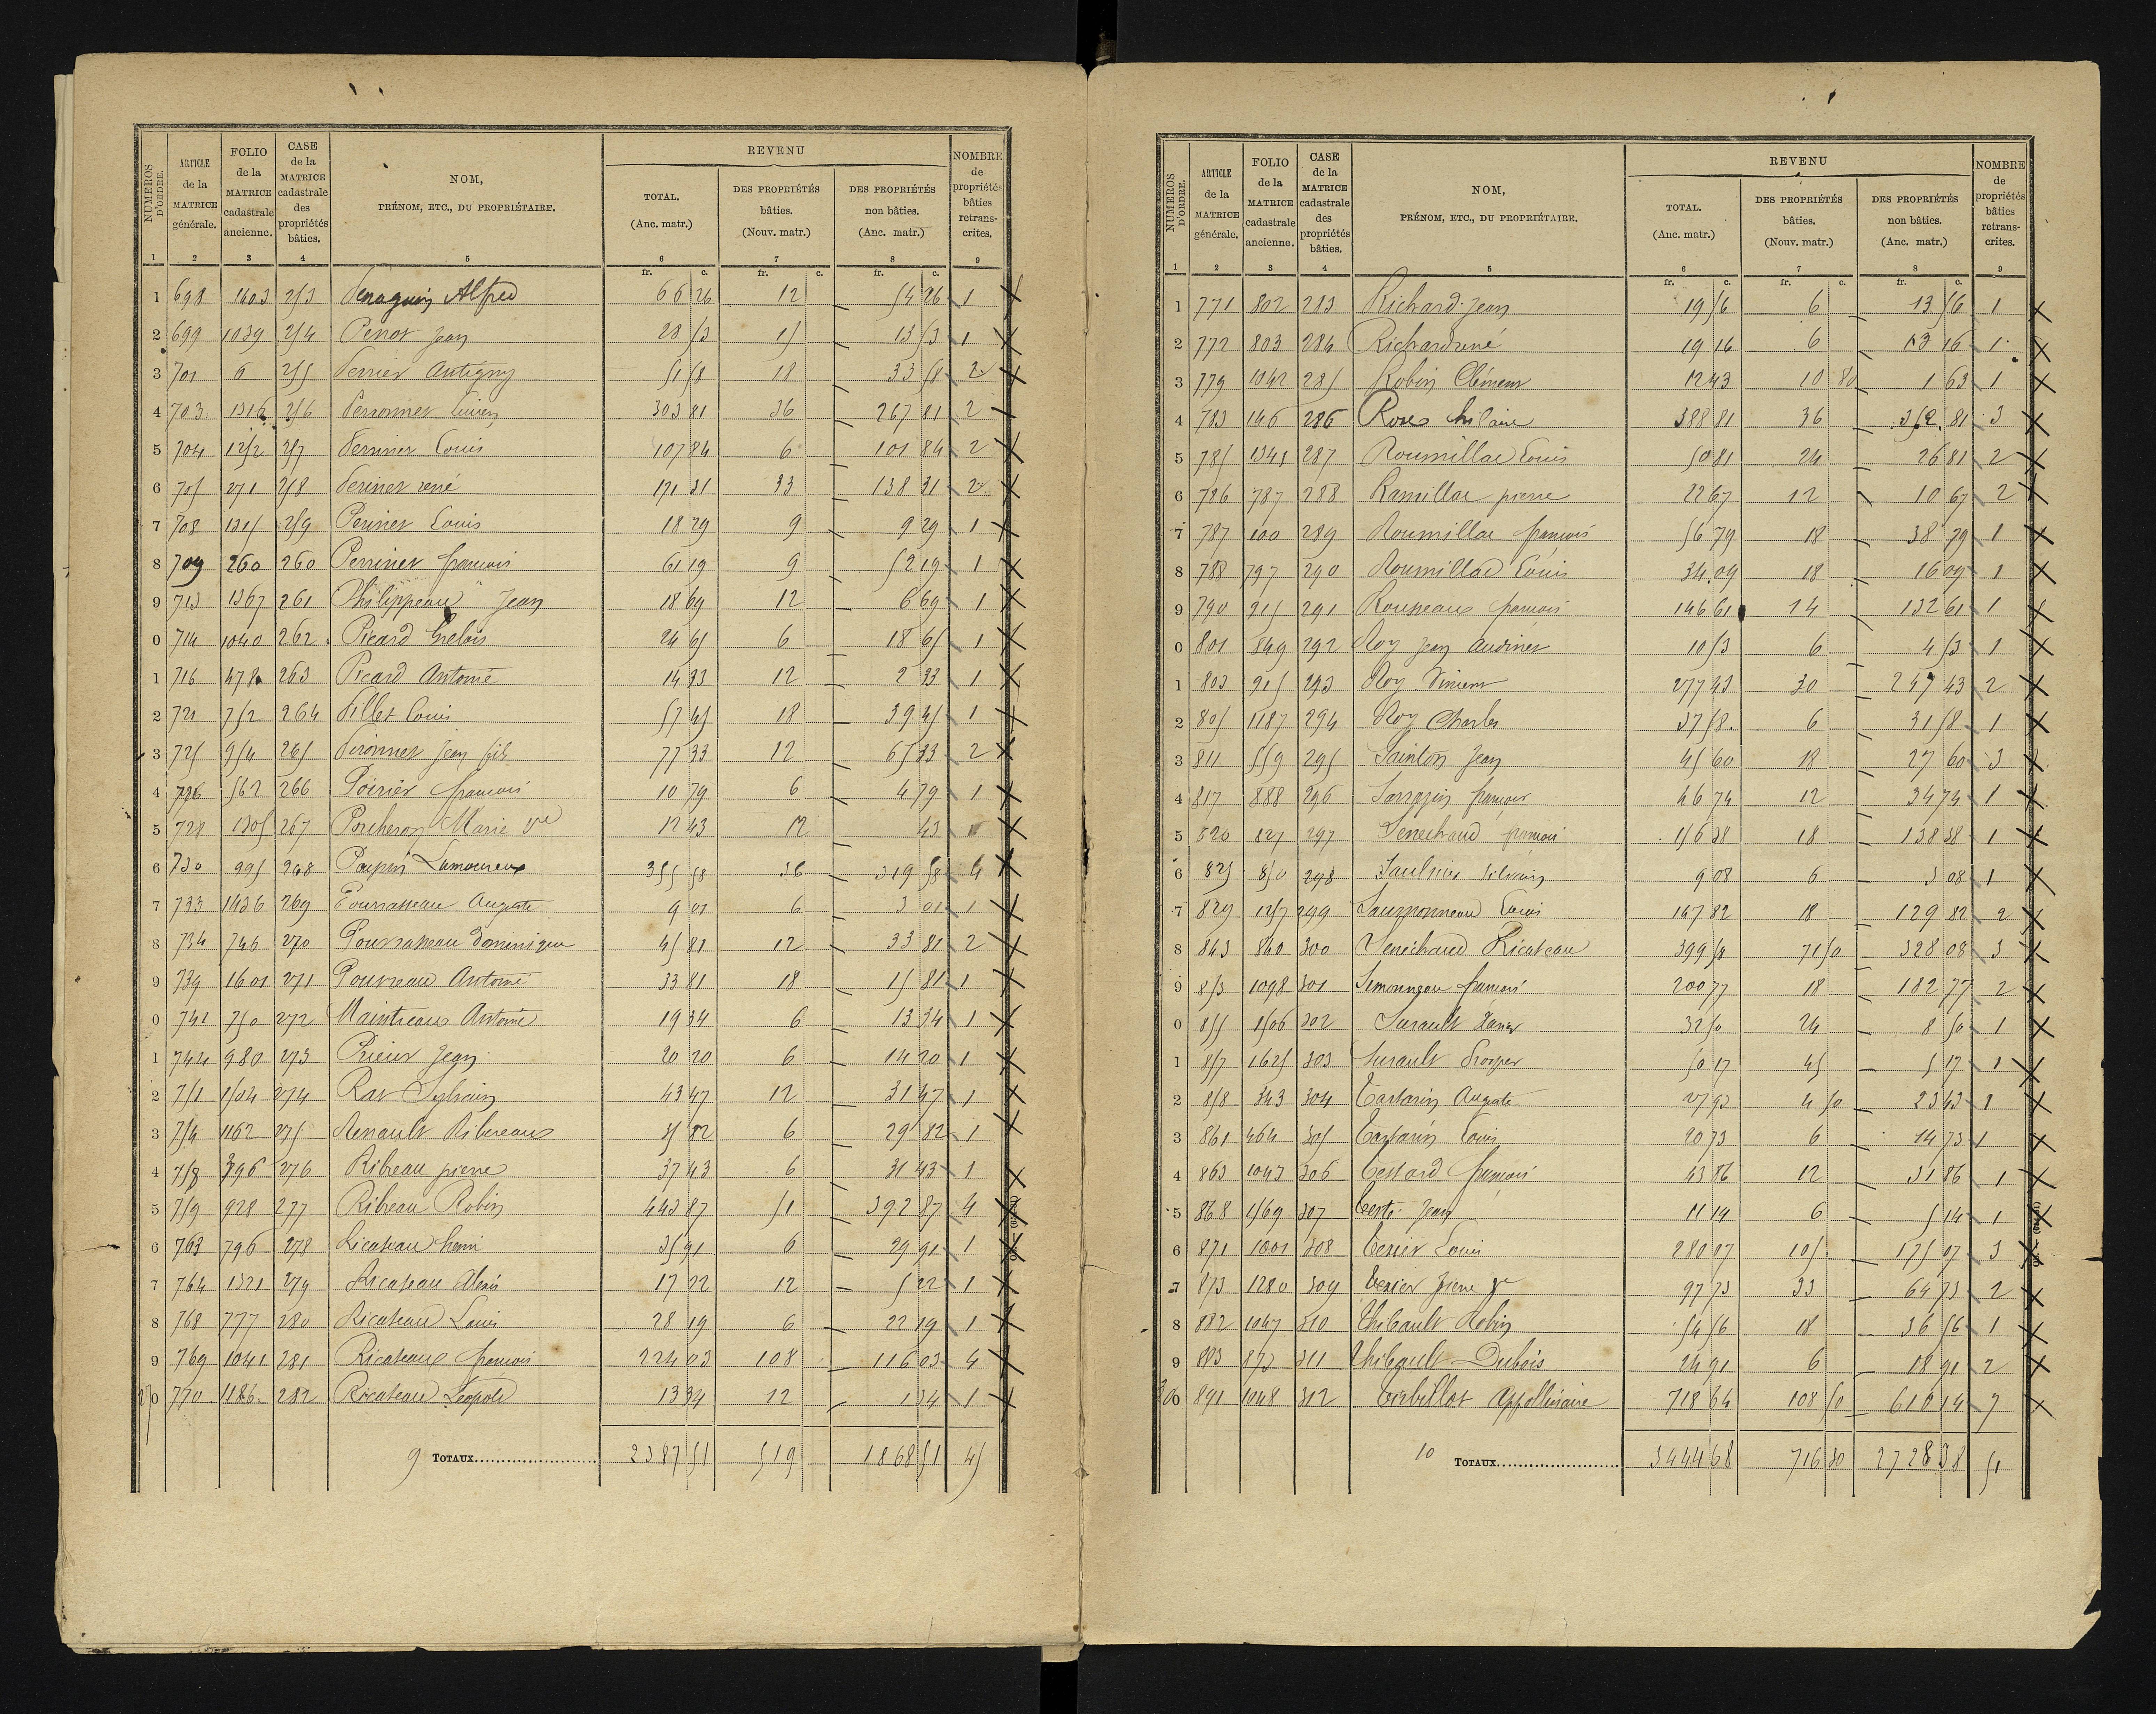 NUMÉROS D'ORDRE. ARTICLE de la MATRICE générale. FOLIO de la MATRICE cadastrale ancienne. CASE de la MATRICE cadastrale des propriétés bâties. NOM, PRÉNOM, ETC., DU PROPRIÉTAIRE. REVENU TOTAL. (Anc. matr.) DES PROPRIÉTÉS bâties. (Nouv. matr.) DES PROPRIÉTÉS non bâties. (Anc. matr.) NOMBRE de propriétés bâties retrans- crites.
1 2 3 4 5 6 7 8 9
fr. c. fr. c. fr. c.
1 698 1603 253 Alfred 66 26 12 — 54 26 1 X
2 699 1039 254 Perrot Jean 28 53 15 — 13 53 1 X
3 701 6 255 Perrier Antigny 51 58 18 — 33 58 2 X
4 703 1316 256 Perronnet 303 81 36 — 267 81 2
5 704 1252 257 Perrinet Louis 107 84 6 — 101 84 2 X
6 705 271 258 Perinet rené 171 31 33 — 138 31 2 X
7 708 1315 259 Perinet Louis 18 29 9 — 9 29 1 X
8 709 260 260 Perrinet francois 61 19 9 — 52 19 1 X
9 713 1367 261 Philippeau Jean 18 69 12 — 6 69 1 X
0 714 1040 262 Picard Grelois 24 65 6 — 18 65 1 X
1 716 478 263 Picard Antoine 14 33 12 — 2 33 1 X
2 721 752 264 Pillet Louis 57 45 18 — 39 45 1 X
3 725 954 265 Pironnet Jean fils 77 33 12 — 65 33 2 X
4 726 562 266 Poirier francois 10 79 6 — 4 79 1 X
5 728 1305 267 Porcheron Marie Vve 12 43 12 43 X
6 730 995 268 Poupin Lamoureux 355 58 36 — 319 58 4 X
7 733 1436 269 Pourrasseau Auguste 9 01 6 — 3 01 1 X
8 734 746 270 Pourrasseau Dominique 45 81 12 — 33 81 2 X
9 739 1601 271 Pouvreau Antoine 33 81 18 — 15 81 1 X
0 741 750 272 Maintreau Antoine 19 34 6 — 13 34 1 X
1 744 980 273 Prieur Jean 20 20 6 — 14 20 1 X
2 751 1504 274 Rat Sylvain 43 47 12 — 31 47 1 X
3 754 1162 275 Renault Ribereau 35 82 6 — 29 82 1 X
4 758 396 276 Ribreau pierre 37 43 6 — 31 43 1 X
5 759 928 277 Ribreau Robin 443 87 51 — 392 87 4 X
6 763 796 278 Ricateau henri 35 91 6 — 29 91 1 X
7 764 1321 279 Ricateau Alexis 17 22 12 — 5 22 1 X
8 768 777 280 Ricateau Louis 28 19 6 — 22 19 1 X
9 769 1041 281 Ricateau francois 224 03 108 — 116 03 4 X
270 770 1186 282 Ricateau Léopold 13 34 12 — 1 34 1 X
9 TOTAUX 2387 51 519 1868 51 45
NUMÉROS D'ORDRE. ARTICLE de la MATRICE générale. FOLIO de la MATRICE cadastrale ancienne. CASE de la MATRICE cadastrale des propriétés bâties. NOM, PRÉNOM, ETC., DU PROPRIÉTAIRE. REVENU TOTAL. (Anc. matr.) DES PROPRIÉTÉS bâties. (Nouv. matr.) DES PROPRIÉTÉS non bâties. (Anc. matr.) NOMBRE de propriétés bâties retrans- crites.
1 2 3 4 5 6 7 8 9
fr. c. fr. c. fr. c.
1 771 802 283 Richard Jean 19 56 6 — 13 56 1 X
2 772 803 284 Richard rené 19 16 6 — 13 16 1 X
3 779 1042 285 Robin Clément 12 43 10 80 — 1 63 1 X
4 783 146 286 hilaire 388 81 36 — 352 81 3 X
5 785 1345 287 Roumillac Louis 50 81 24 — 26 81 2 X
6 786 787 288 Ramillac pierre 22 67 12 — 10 67 2 X
7 787 100 289 Roumillac francois 56 79 18 — 38 79 1 X
8 788 797 290 Roumillac Louis 34 09 18 — 16 09 1 X
9 790 215 291 Rousseau francois 146 61 14 — 132 61 1 X
0 801 849 292 Roy Jean Audinet 10 53 6 — 4 53 1 X
1 803 915 293 Roy Vincent 277 43 30 — 247 43 2 X
2 805 1187 294 Roy Charles 37 58 6 — 31 58 1 X
3 811 559 295 Sainton Jean 45 60 18 — 27 60 3 X
4 817 888 296 Sarrazin francois 46 74 12 — 34 74 1 X
5 820 127 297 Senechaud francois 156 38 18 — 138 38 1 X
6 825 850 298 Saulnier Silvain 9 08 6 — 3 08 1 X
7 829 1257 299 Saumonneau Louis 147 82 18 — 129 82 2 X
8 843 840 300 Senechaud Ricateau 399 58 71 50 — 328 08 3 X
9 853 1098 301 francois 200 77 18 — 182 77 2 X
0 855 1506 302 Surault 32 50 24 — 8 50 1 X
1 857 1625 303 Surault Prosper 50 17 45 — 5 17 1 X
2 858 343 304 Tartarin Auguste 27 93 4 50 — 23 43 1 X
3 861 464 305 Tartarin Louis 20 73 6 — 14 73 1 X
4 863 1043 306 Testard francois 43 86 12 — 31 86 1 X
5 868 1569 307 Teste Jean 11 14 6 — 5 14 1 X
6 871 1001 308 Texier Louis 280 07 105 — 175 07 3 X
7 873 1280 309 Texier pierre 97 73 33 — 64 73 2 X
8 882 1047 310 Thibault Robin 54 56 18 — 36 56 1 X
9 883 873 311 Thibault Dubois 24 91 6 — 18 91 2 X
300 891 1048 312 Torbillot Appollinaire 718 64 108 50 — 610 14 7 X
10 TOTAUX 3444 68 716 30 2728 38 51